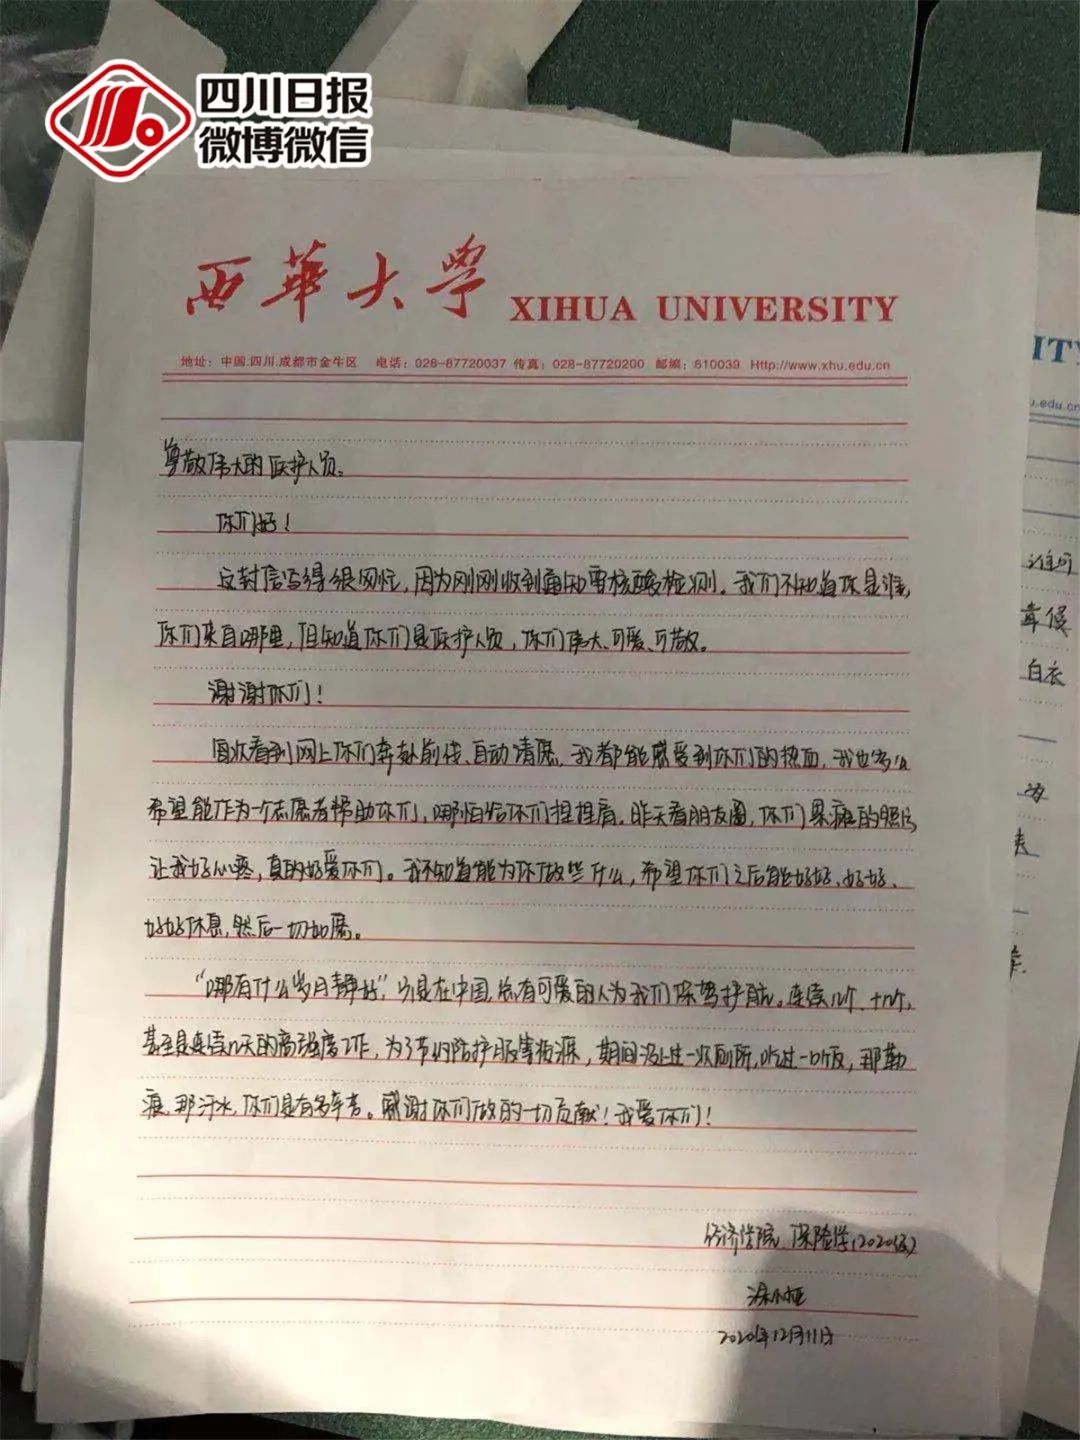 四川日报
微博微信
西華大學 XIHUA UNIVERSITY
地址：中国.四川.成都市金牛区 电话：028-87720037 传真：028-87720200 邮编：610039 Http://www.xhu.edu.cn
尊敬伟大的医护人员、
你们好！
这封信写得很匆忙，因为刚刚收到通知要核酸检测。我们不知道你是谁，
你们来自哪里，但知道你们是医护人员，你们伟大、可爱、可敬。
谢谢你们！
每次看到网上你们奔赴前线、自动请愿，我都能感受到你们的热血，我也多么
希望能作为一个志愿者帮助你们，哪怕给你们捏捏肩。昨天看朋友圈，你们累瘫的照片
让我好心疼，真的好爱你们。我不知道能为你做些什么，希望你们之后能好好、好好、
好好休息，然后一切如愿。
“哪有什么岁月静好”，只是在中国总有可爱的人为我们保驾护航。连续几个、十几个，
甚至是连续几天的高强度工作，为了节约防护服等资源，期间没上过一次厕所，吃过一口饭，那勒
痕、那汗水，你们是有多辛苦。感谢你们做的一切贡献！我爱你们！
经济学院、保险学(2020级)
2020年12月11日
ITY
u.edu.cn
谁可
白衣